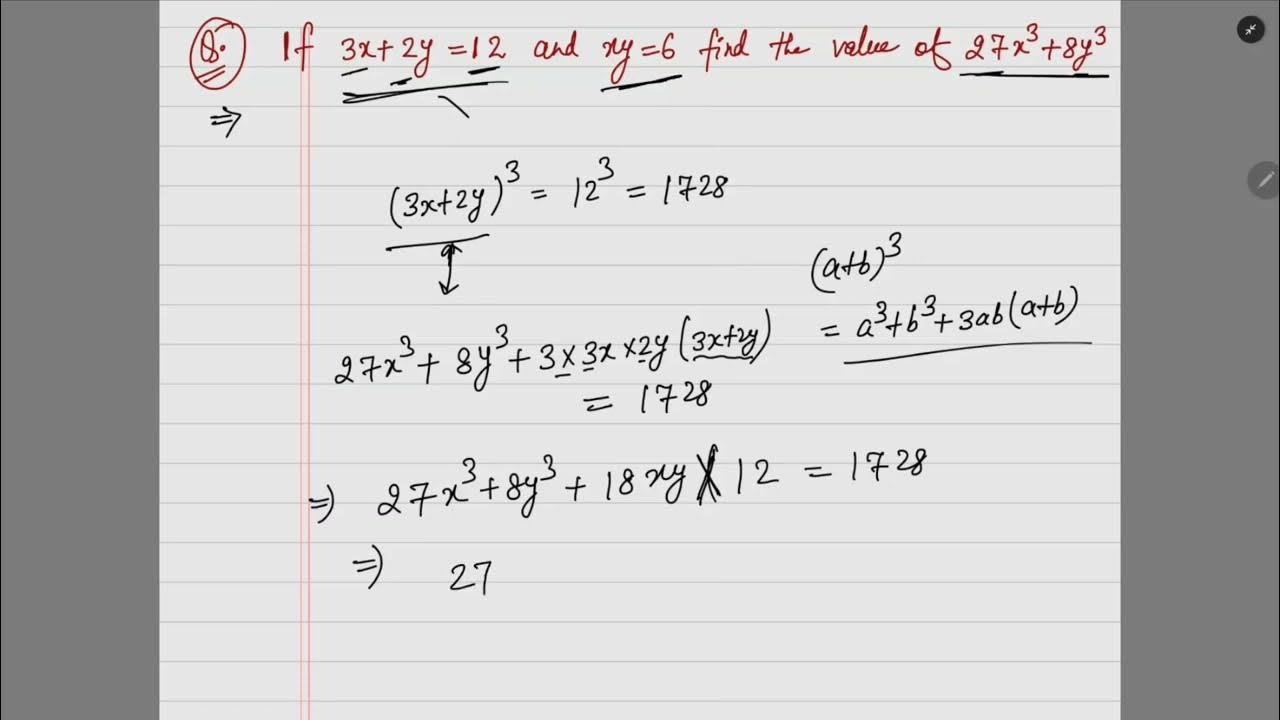 Q. If 3x+2y=12 and xy=6 find the value of 27x³+8y³
⇒
(3x+2y)³ = 12³ = 1728
(a+b)³
= a³+b³+3ab(a+b)
27x³+ 8y³+ 3×3x×2y(3x+2y)
= 1728
⇒ 27x³+8y³+18xy × 12 = 1728
⇒ 27